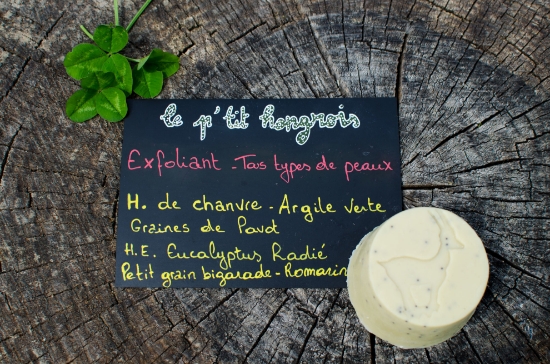 le p'tit hongrois
Exfoliant - Tous types de peaux
H. de chanvre - Argile verte
Graines de Pavot
H.E. Eucalyptus Radié
Petit grain bigarade - Romarin